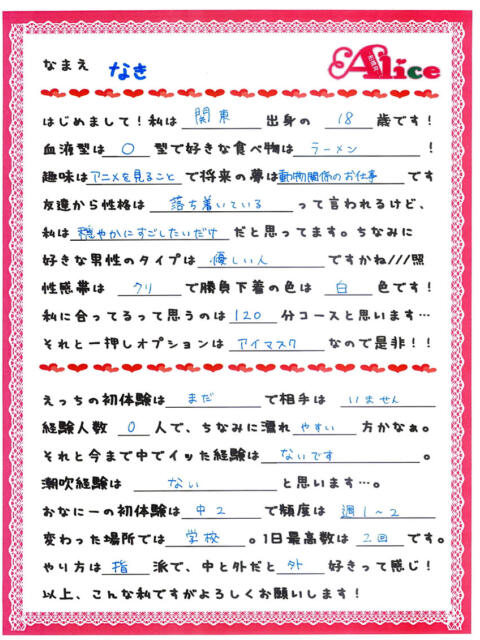 なまえ なき
Alice
はじめまして!私は 関東 出身の 18 歳です!
血液型は O 型で好きな食べ物は ラーメン !
趣味は アニメを見ること で将来の夢は 動物関係のお仕事 です
友達から性格は 落ち着いている って言われるけど、
私は 穏やかにすごしたいだけ だと思ってます。ちなみに
好きな男性のタイプは 優しい人 ですかね///照
性感帯は クリ で勝負下着の色は 白 色です!
私に合ってるって思うのは 120 分コースと思います…
それと一押しオプションは アイマスク なので是非!!
えっちの初体験は まだ で相手は いません
経験人数 0 人で、ちなみに濡れ やすい 方かなぁ。
それと今まで中でイッた経験は ないです 。
潮吹経験は ない と思います…。
やり方は 指 派で、中と外だと 外 好きって感じ!
以上、こんな私ですがよろしくお願いします!